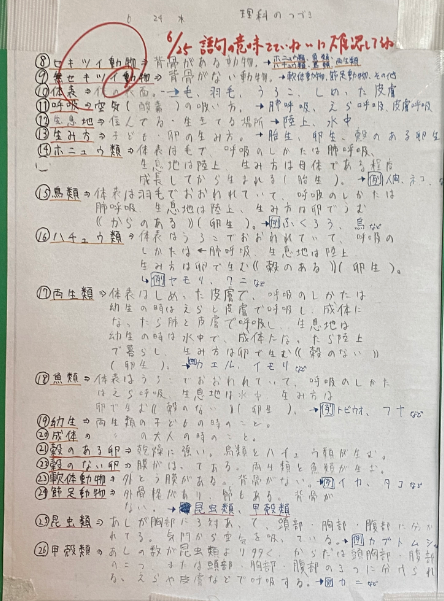 6 24 水 理科のつづき
6/25 語句の意味をていねいに確認してね
⑧セキツイ動物⇒背骨がある動物。→ホニュウ類、鳥類、両生類
⑨無セキツイ動物⇒背骨がない動物。→軟体動物、節足動物、その他
⑩体表⇒体の表面。→毛、羽毛、うろこ、しめった皮膚
⑪呼吸⇒空気(酸素)の吸い方。→肺呼吸、えら呼吸、皮膚呼吸
⑫生息地⇒住んでる・生きてる場所→陸上、水中
⑬生み方⇒子ども・卵の生み方。→胎生、卵生、殻のある卵生
⑭ホニュウ類⇒体表は毛で、呼吸のしかたは肺呼吸、
生息地は陸上、生み方は母体である程度
成長してから生まれる(胎生)。→例人間、ネコ
⑮鳥類⇒体表は羽毛でおおわれていて、呼吸のしかたは
肺呼吸、生息地は陸上、生み方は卵でうむ
《からのある》(卵生)。→例ふくろう、鳥など
⑯ハチュウ類⇒体表はうろこでおおわれていて、呼吸の
しかたは肺呼吸、生息地は陸上
生み方は卵で生む《殻のある》(卵生)。
→例ヤモリ、ワニなど
⑰両生類⇒体表はしめった皮膚で、呼吸のしかたは
幼生の時はえらと皮膚で呼吸し、成体に
なったら肺と皮膚で呼吸し、生息地は
幼生の時は水中で、成体になったら陸上
で暮らし、生み方は卵で生む《殻のない》
(卵生)。→例カエル、イモリなど
⑱魚類⇒体表はうろこでおおわれていて、呼吸のしかた
はえら呼吸、生息地は水中、生み方は
卵でうむ《殻のない》(卵生)。→例トビウオ、フナなど
⑲幼生⇒両生類の子どもの時のこと。
⑳成体⇒の大人の時のこと。
㉑殻のある卵⇒乾燥に強い。鳥類とハチュウ類が生む。
㉒殻のない卵⇒膜がはってある。両生類と魚類が生む。
㉓軟体動物⇒外とう膜がある。背骨がない。→例イカ、タコなど
㉔節足動物⇒外骨格があり、節もある。背骨が
ない。→昆虫類、甲殻類
㉕昆虫類⇒あしが胸部に3対あって、頭部・胸部・腹部に分か
れてる。気門から空気を吸っている。→例カブトムシ
㉖甲殻類⇒あしの数が昆虫類より多く、からだは頭胸部・腹部
の2つ、または頭部・胸部・腹部の3つに分けられ
る。えらや皮膚などで呼吸する。→例カニなど